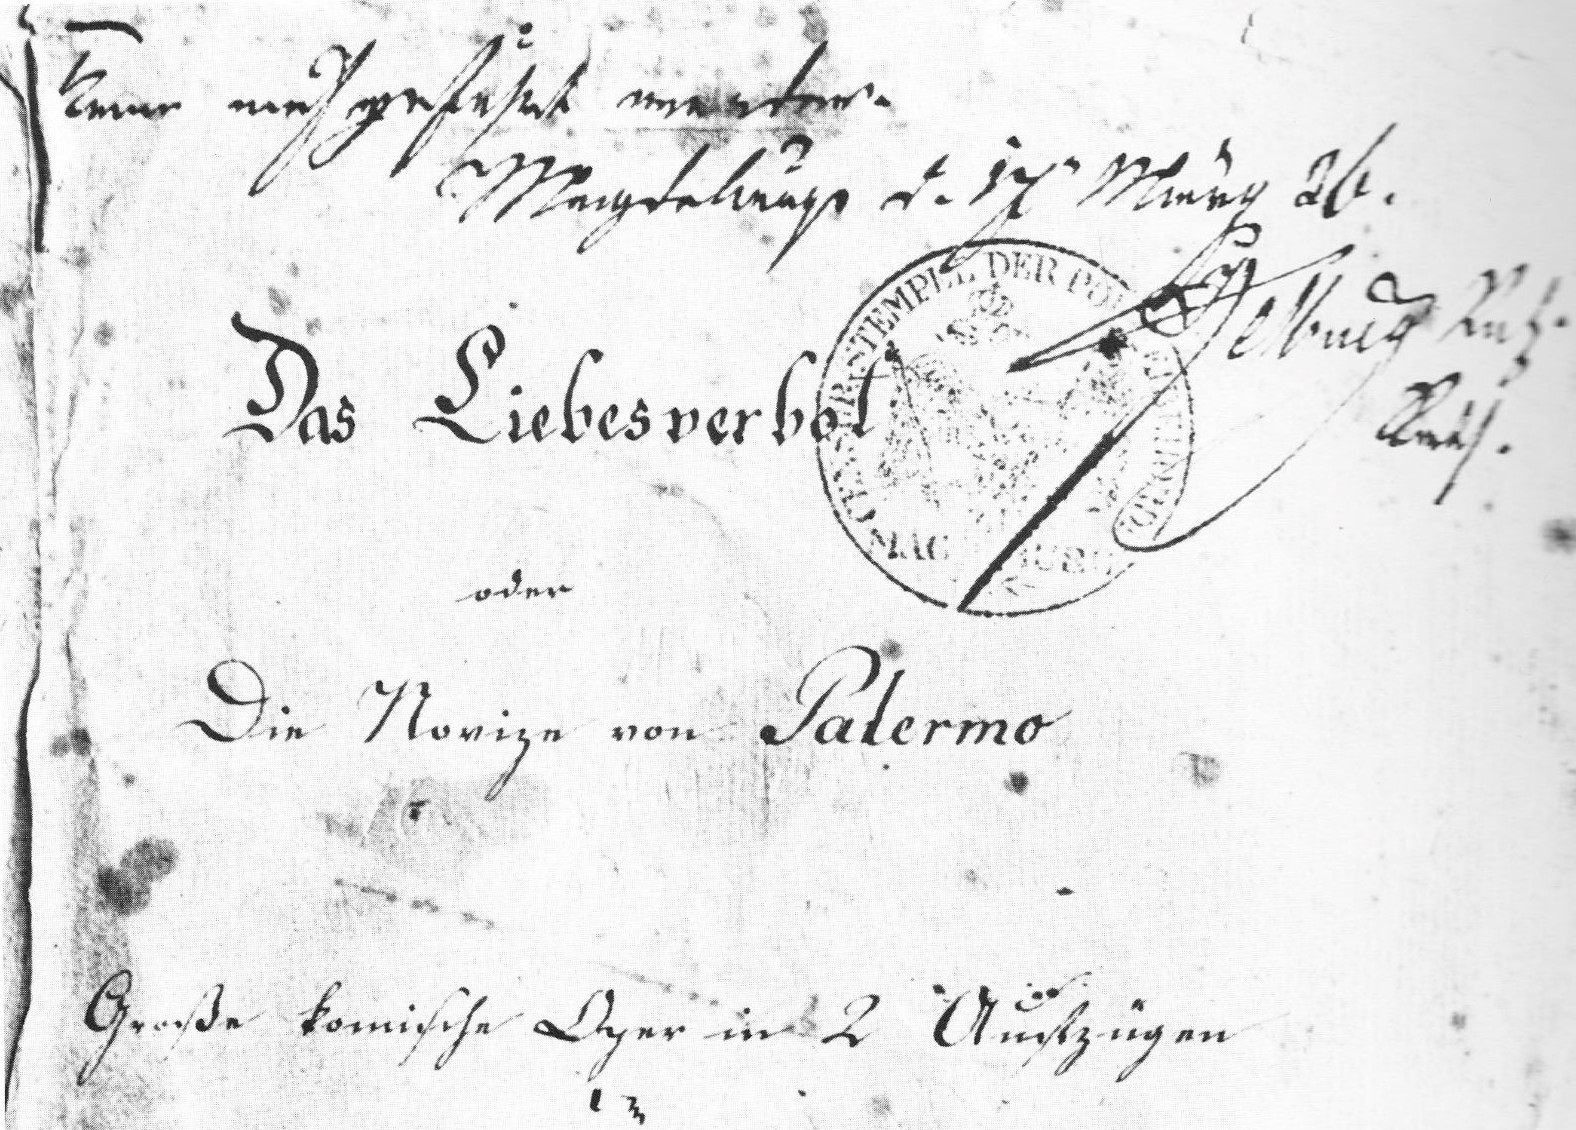 Kann aufgeführt werden.
Magdeburg d. 17 März 36.
Das Liebesverbot
oder
Die Novize von Palermo
Große komische Oper in 2 Aufzügen
CENSUR STEMPEL DER POLIZEI
MAGDEBURG